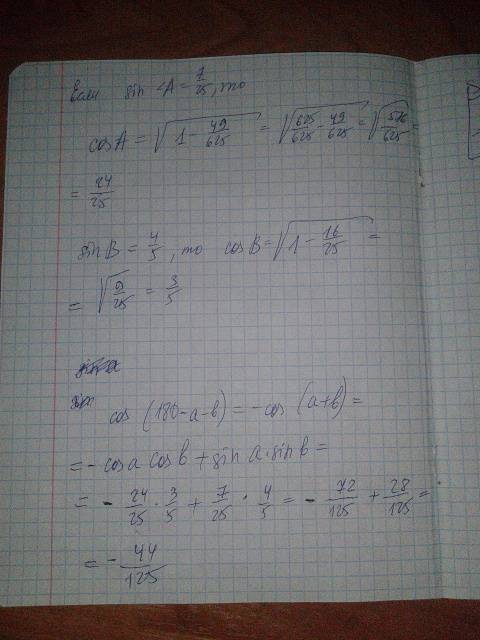 Если sin ∠A = 7/25, то
cosA = √(1 - 49/625) = √(625/625 - 49/625) = √(576/625) =
= 24/25
sinB = 4/5, то cosB = √(1 - 16/25) =
= √(9/25) = 3/5
cos (180-a-b) = -cos (a+b) =
= -cosa cosb + sina·sinb =
= - 24/25 · 3/5 + 7/25 · 4/5 = - 72/125 + 28/125 =
= - 44/125